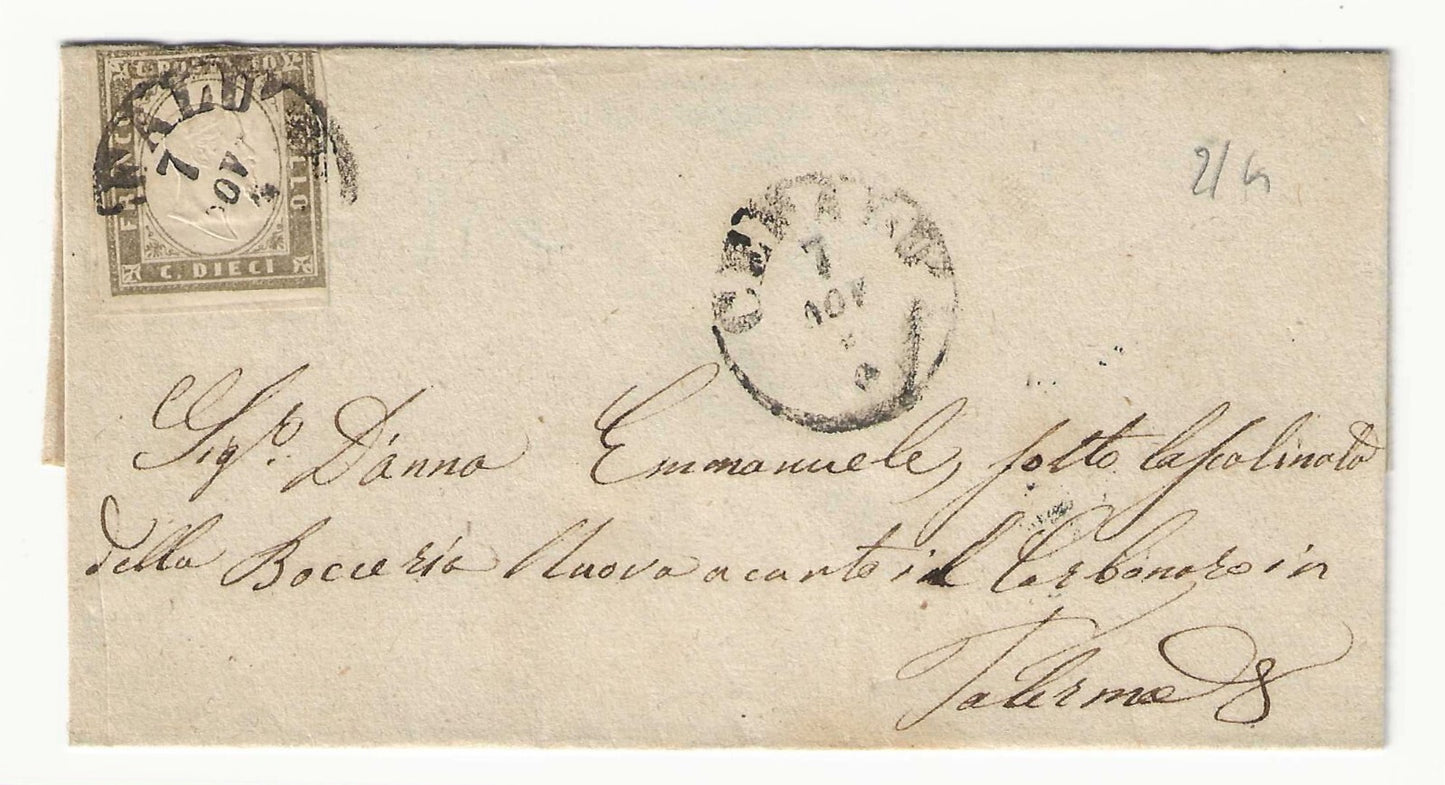 C. POSTE
FRANCO
BOLLO
C. DIECI
7
NOV
CEFALU
7
NOV
2/4
Sig.r D'anna Emmanuele, sotto
della Boccieria Nuova acanto il Carbonaro in
Palermo